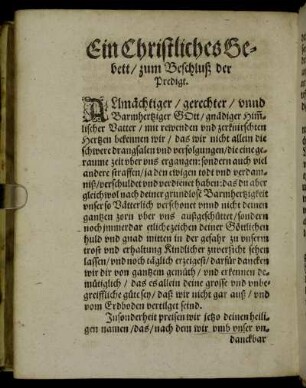 Ein Christliches Ge-
bett / zum Beschluß der
Predigt.
ALlmächtiger / gerechter / vnnd
Barmhertziger GOtt / gnädiger Him̃-
lischer Vatter / mit rewenden vnd zerknirschten
Hertzen bekennen wir / das wir nicht allein die
schwere drangsalen vnd verfolgungen / die eine ge-
raume zeit vber vns ergangen: sondern auch viel
andere straffen / ja den ewigen todt vnd verdam-
niß / verschuldet vnd verdienet haben: das du aber
gleichwol nach deiner grundlose Barmhertzigkeit
vnser so Vätterlich verschonet vnnd nicht deinen
gantzen zorn vber vns außgeschüttet / sondern
noch jmmerdar etliche zeichen deiner Göttlichen
huld vnd gnad mitten in der gefahr zu vnserm
trost vnd erhaltung Kindlicher zuversicht sehen
lassen / vnd noch täglich erzeigest / darfür dancken
wir dir von gantzem gemüth / vnd erkennen de-
mütiglich / das es allein deine grosse vnd vnbe-
greiffliche güte sey / daß wir nicht gar auß / vnd
vom Erdboden vertilget seind.
Insonderheit preisen wir jetzo deinen heili-
gen namen / das / nach dem wir vmb vnser vn-
danckbar